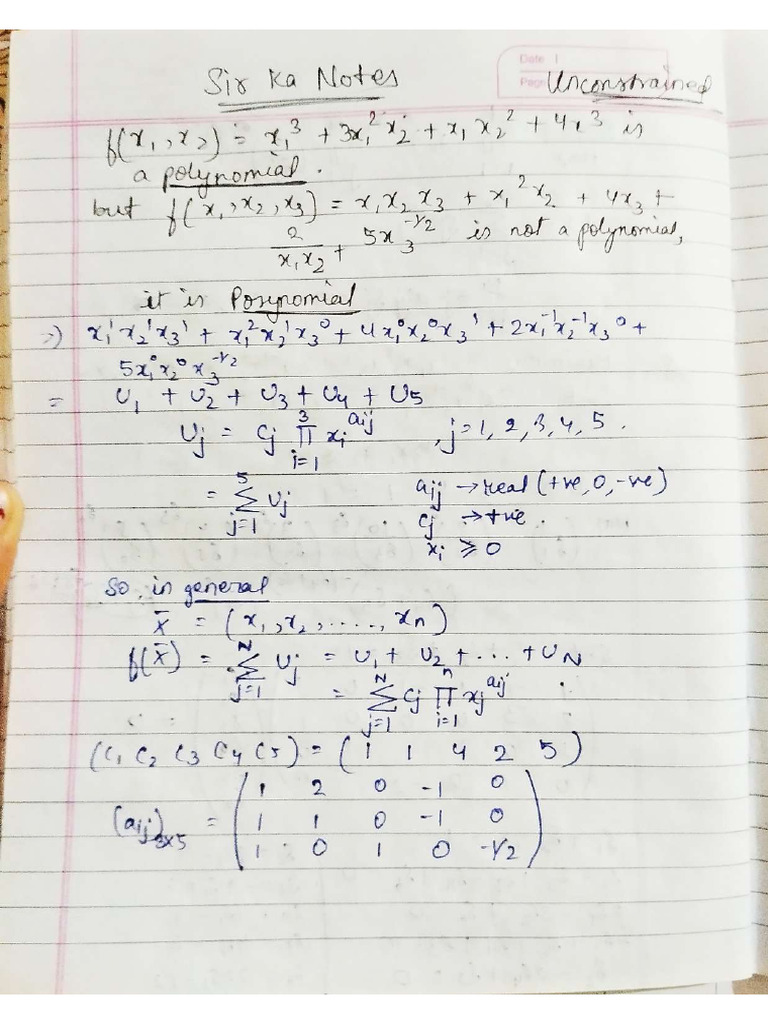 Date
Page
Sir Ka Notes Unconstrained
f(x₁, x₂) = x₁³ + 3x₁²x₂ + x₁x₂² + 4x³ is
a polynomial.
but f(x₁, x₂, x₃) = x₁x₂x₃ + x₁²x₂ + 4x₃ +
2/(x₁x₂) + 5x₃^(-1/2) is not a polynomial,
it is Posynomial
⇒ x₁¹x₂¹x₃¹ + x₁²x₂¹x₃⁰ + 4x₁⁰x₂⁰x₃¹ + 2x₁⁻¹x₂⁻¹x₃⁰ +
5x₁⁰x₂⁰x₃^(-1/2)
= U₁ + U₂ + U₃ + U₄ + U₅
Uⱼ = Cⱼ ∏_{i=1}^{3} xᵢ^{aᵢⱼ} , j = 1, 2, 3, 4, 5.
= ∑_{j=1}^{5} Uⱼ aᵢⱼ → real (+ve, 0, -ve)
Cⱼ → +ve.
xᵢ ≥ 0
So, in general
X̄ = (x₁, x₂, ....., xₙ)
f(X̄) = ∑_{j=1}^{N} Uⱼ = U₁ + U₂ + ... + U_N
= ∑_{j=1}^{N} Cⱼ ∏_{i=1}^{n} xⱼ^{aᵢⱼ}
(C₁ C₂ C₃ C₄ C₅) = (1 1 4 2 5)
1 2 0 -1 0
(aᵢⱼ)₃ₓ₅ = 1 1 0 -1 0
1 0 1 0 -1/2